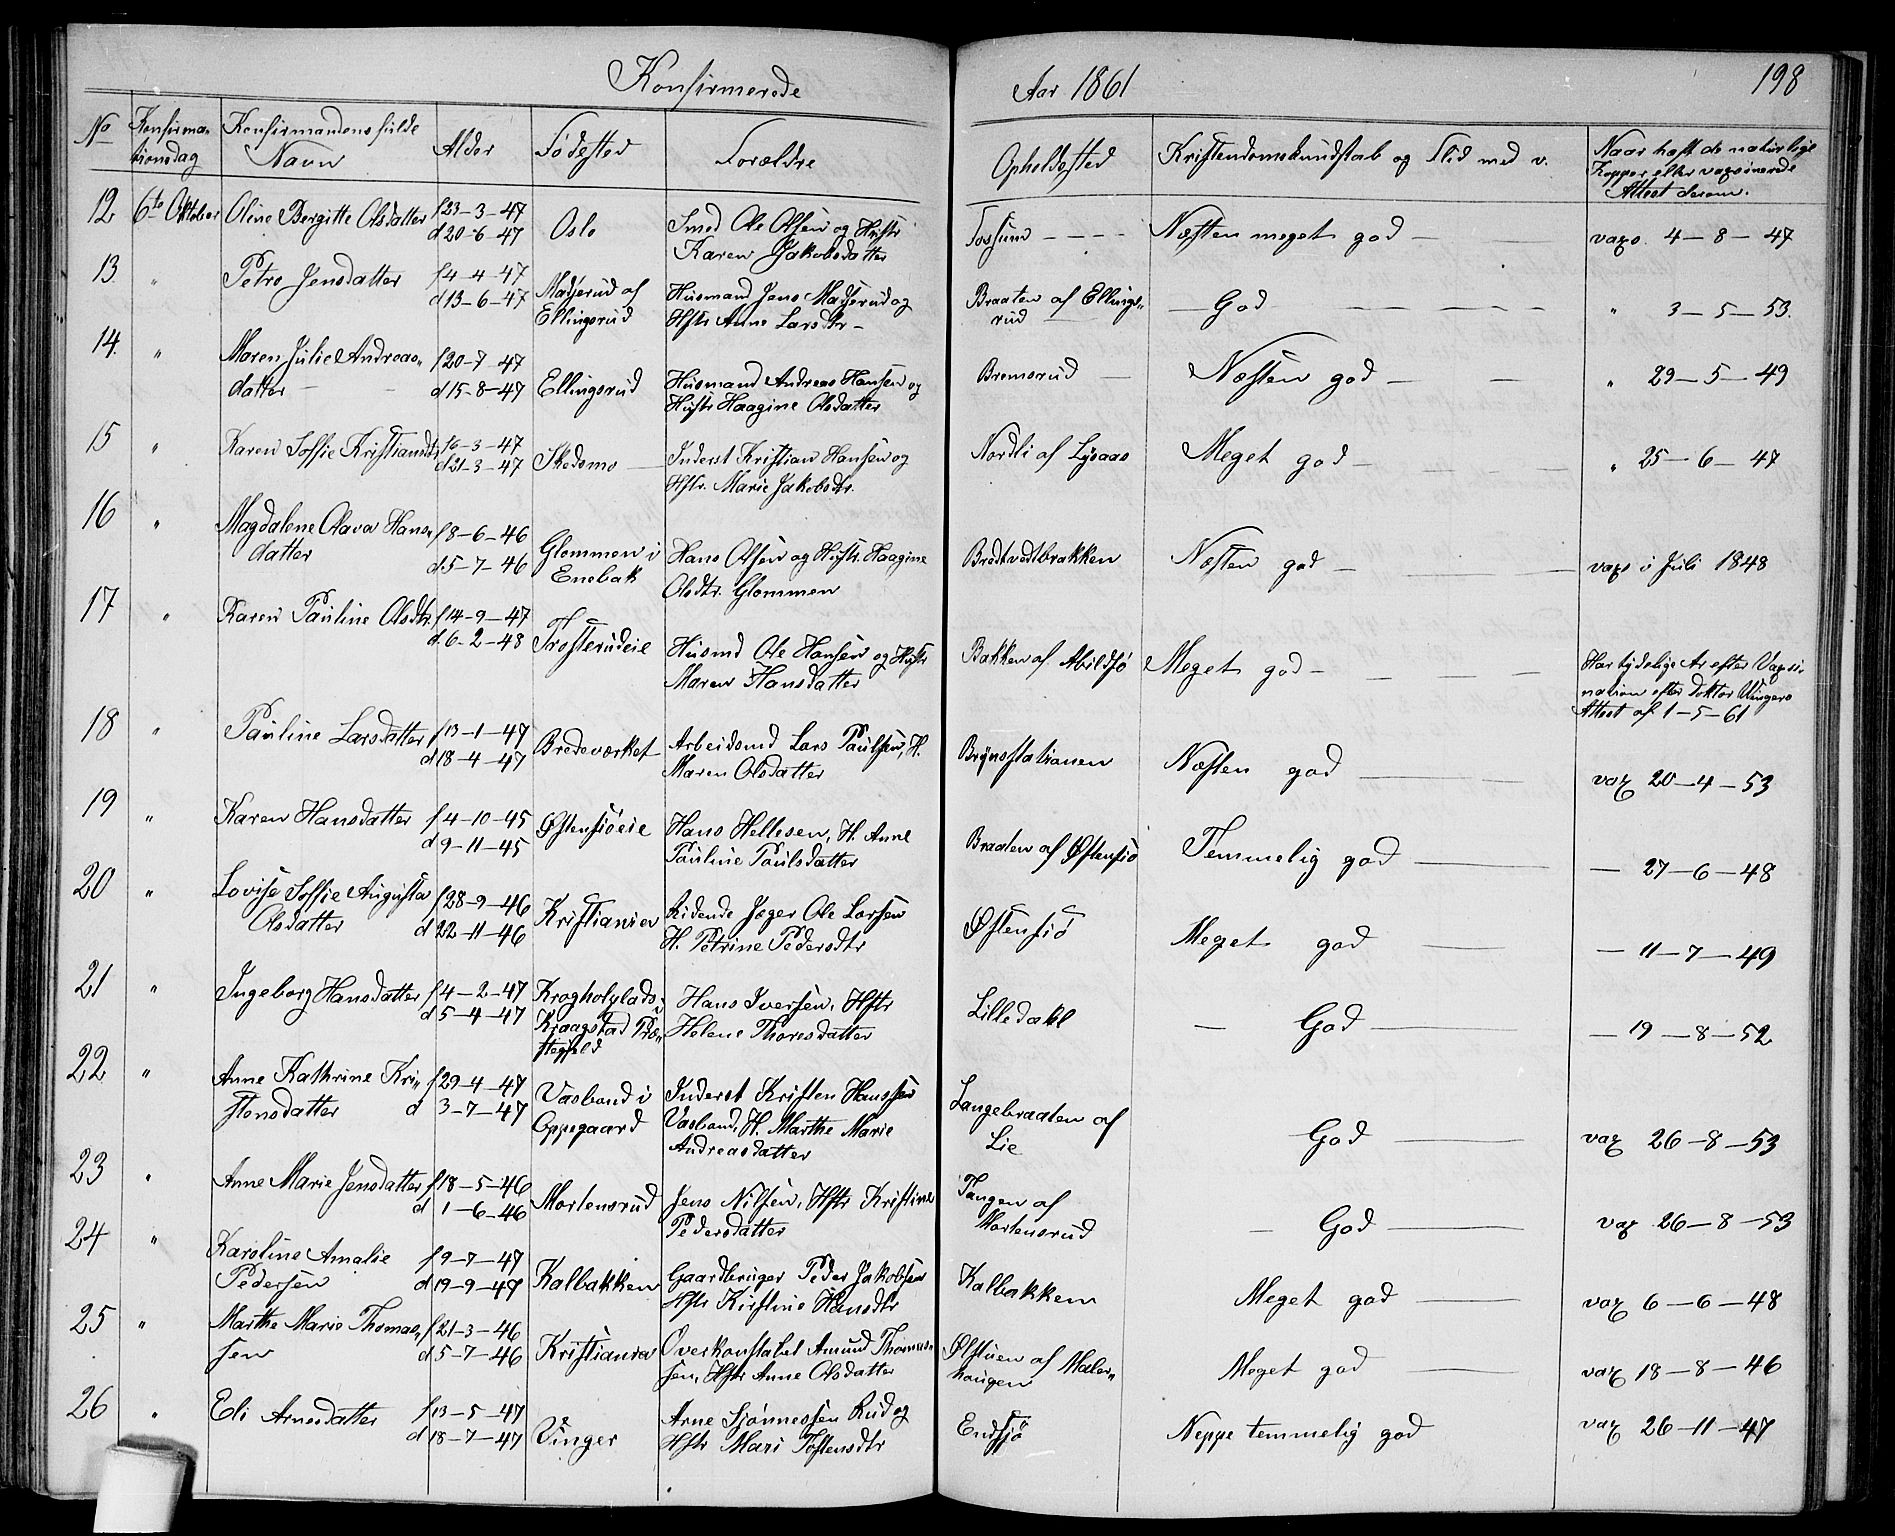 Konfirmerede Aar 1861 198
No Konfirma- Konfirmandens fulde Alder Fødested Forældre Opholdssted Kristendomskundskab og Flid med v. Naar haft de naturlige
tionsdag Navn Kopper eller vaxinerede
Attest derom.
12 6te Oktober Oline Bergitte Olsdatter f 23-3-47 Oslo Smed Ole Olsen og Hustr Fossum Næsten meget god vax. 4-8-47
d 20-6-47 Karen Jakobsdatter
13. " Petro Jensdatter f 4-4-47 Madserud af Husmand Jens Madserud og Braaten af Ellings- God " 3-5-53.
d 13-6-47 Ellingsrud Hstr Anne Larsdtr rud
14. " Maren Julie Andreas- f 20-7-47 Ellingsrud Husmand Andreas Hansen og Bremsrud Næsten god " 29-5-49
datter d 15-8-47 Hustr Haagine Olsdatter
15 " Karen Soffie Kristiansdtr f 6-3-47 Skedsmo Inderst Kristian Hansen og Nordli af Lysaas Meget god " 25-6-47
d 21-3-47 Hstr. Marie Jakobsdtr.
16 " Magdalene Olava Hans- f 8-6-46 Glommen i Hans Olsen og Hustr. Haagine Bredtvedtbrakken Næsten god vax i Juli 1848
datter d 5-7-46 Enebak Olsdtr. Glommen
17 " Karen Pauline Olsdtr. f 14-9-47 Trosterudeie Husmd Ole Hansen og Hustr Bakken af Abildsø Meget god Har tydelige Ar efter Vaxi-
d 6-2-48 Maren Hansdatter nation efter Doktor Ungers
Attest af 1-5-61
18 " Pauline Larsdatter f 13-1-47 Bredeværket Arbeidsmd Lars Paulsen, H. Brynsstationen Næsten god vax 20-4-53
d 18-4-47 Maren Olsdatter
19 " Karen Hansdatter f 4-10-45 Østensiøeie Hans Hellesen, H. Anne Braaten af Østensiø Temmelig god — 27-6-48
d 9-11-45 Pauline Paulsdatter
20 " Lovise Soffie Augusta f 28-9-46 Kristiania Ridende Jæger Ole Larsen Østensiø Meget god — 11-7-49
Olsdatter d 22-11-46 H. Petrine Pedersdtr
21 " Ingeborg Hansdatter f 4-2-47 Hans Iversen, Hstr Lilledahl — God — 19-8-52
d 5-4-47 Kraagstad Præ- Helene Thoresdatter
stegjeld
22 " Anne Kathrine Kri- f 29-4-47 Vasbond i Inderst Kristen Hanssen Langebraaten af God vax 26-8-53
stensdatter d 3-7-47 Oppegaard Vasbond, H. Marthe Marie Lie
Andreasdatter
23 " Anne Marie Jensdatter f 18-5-46 Mortensrud Jens Nilsen, Hstr Kristine Tangen af — God vax 26-8-53
d 1-6-46 Pedersdatter Mortensrud
24 " Karoline Amalie f 9-7-47 Kalbakken Gaardbruger Peder Jakobsen Kalbakken Meget god vax 6-6-48
Pedersen d 19-9-47 Hstr Kirstine Hansdtr
25 " Marthe Marie Thomas- f 21-3-46 Kristiania Overkonstabel Amund Thomas- Østuen af Maler- Meget god vax 18-8-46
sen d 5-7-46 sen, Hstr Anne Olsdatter haugen
26 " Eli Arnesdatter f 13-5-47 Vinger Arne Sjønnessen Rud og Endsjø Neppe temmelig god vax 26-11-47
d 18-7-47 Hstr Mari Tostensdtr